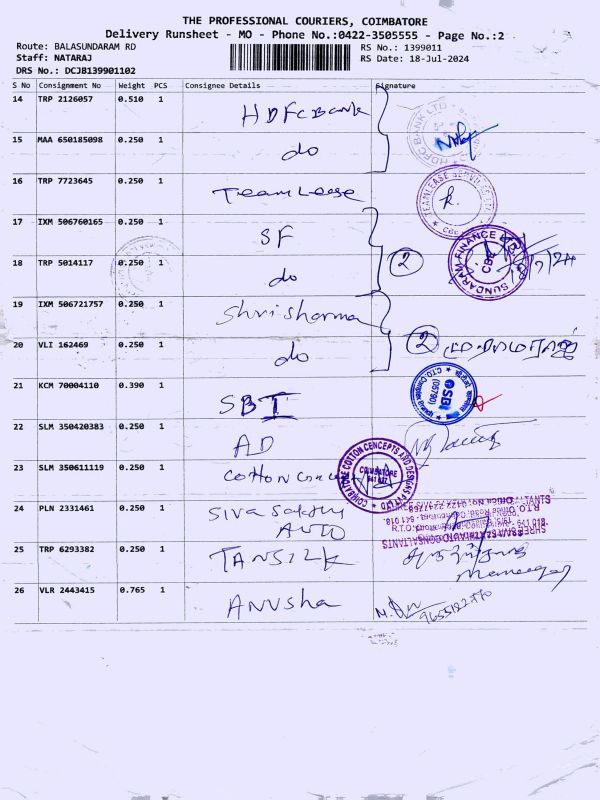 THE PROFESSIONAL COURIERS, COIMBATORE
Delivery Runsheet - MO - Phone No.:0422-3505555 - Page No.:2
Route: BALASUNDARAM RD
RS No.: 1399011
Staff: NATARAJ
RS Date: 18-Jul-2024
DRS No.: DCJB139901102
S No Consignment No Weight PCS Consignee Details Signature
14 TRP 2126057 0.510 1 HDFC Bank
HDFC BANK LTD
15 MAA 650185098 0.250 1 do
16 TRP 7723645 0.250 1 TeamLease
TEAMLEASE SERVICES LTD
CBE
17 IXM 506760165 0.250 1 SF
SUNDARAM FINANCE
CBE
2
18 TRP 5014117 0.250 1 do
19 IXM 506721757 0.250 1 Shri sharma
20 VLI 162469 0.250 1 do
2
21 KCM 70004110 0.390 1 SBI
SBI
(05790)
22 SLM 350420383 0.250 1 AD
23 SLM 350611119 0.250 1 Cotton
COIMBATORE COTTON CONCEPTS AND DESIGNS PVT LTD
COIMBATORE
24 PLN 2331461 0.250 1 Siva Sakthy
AUTO
25 TRP 6293382 0.250 1 TANSILK
26 VLR 2443415 0.765 1 ANUSHA